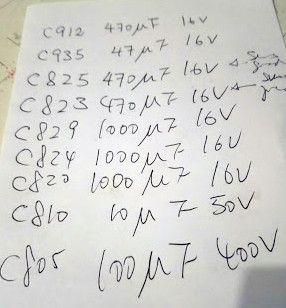 C912 470µF 16V
C935 47µF 16V
C825 470µF 16V
C823 470µF 16V
C829 1000µF 16V
C824 1000µF 16V
C820 1000µF 16V
C810 10µF 50V
C805 100µF 400V